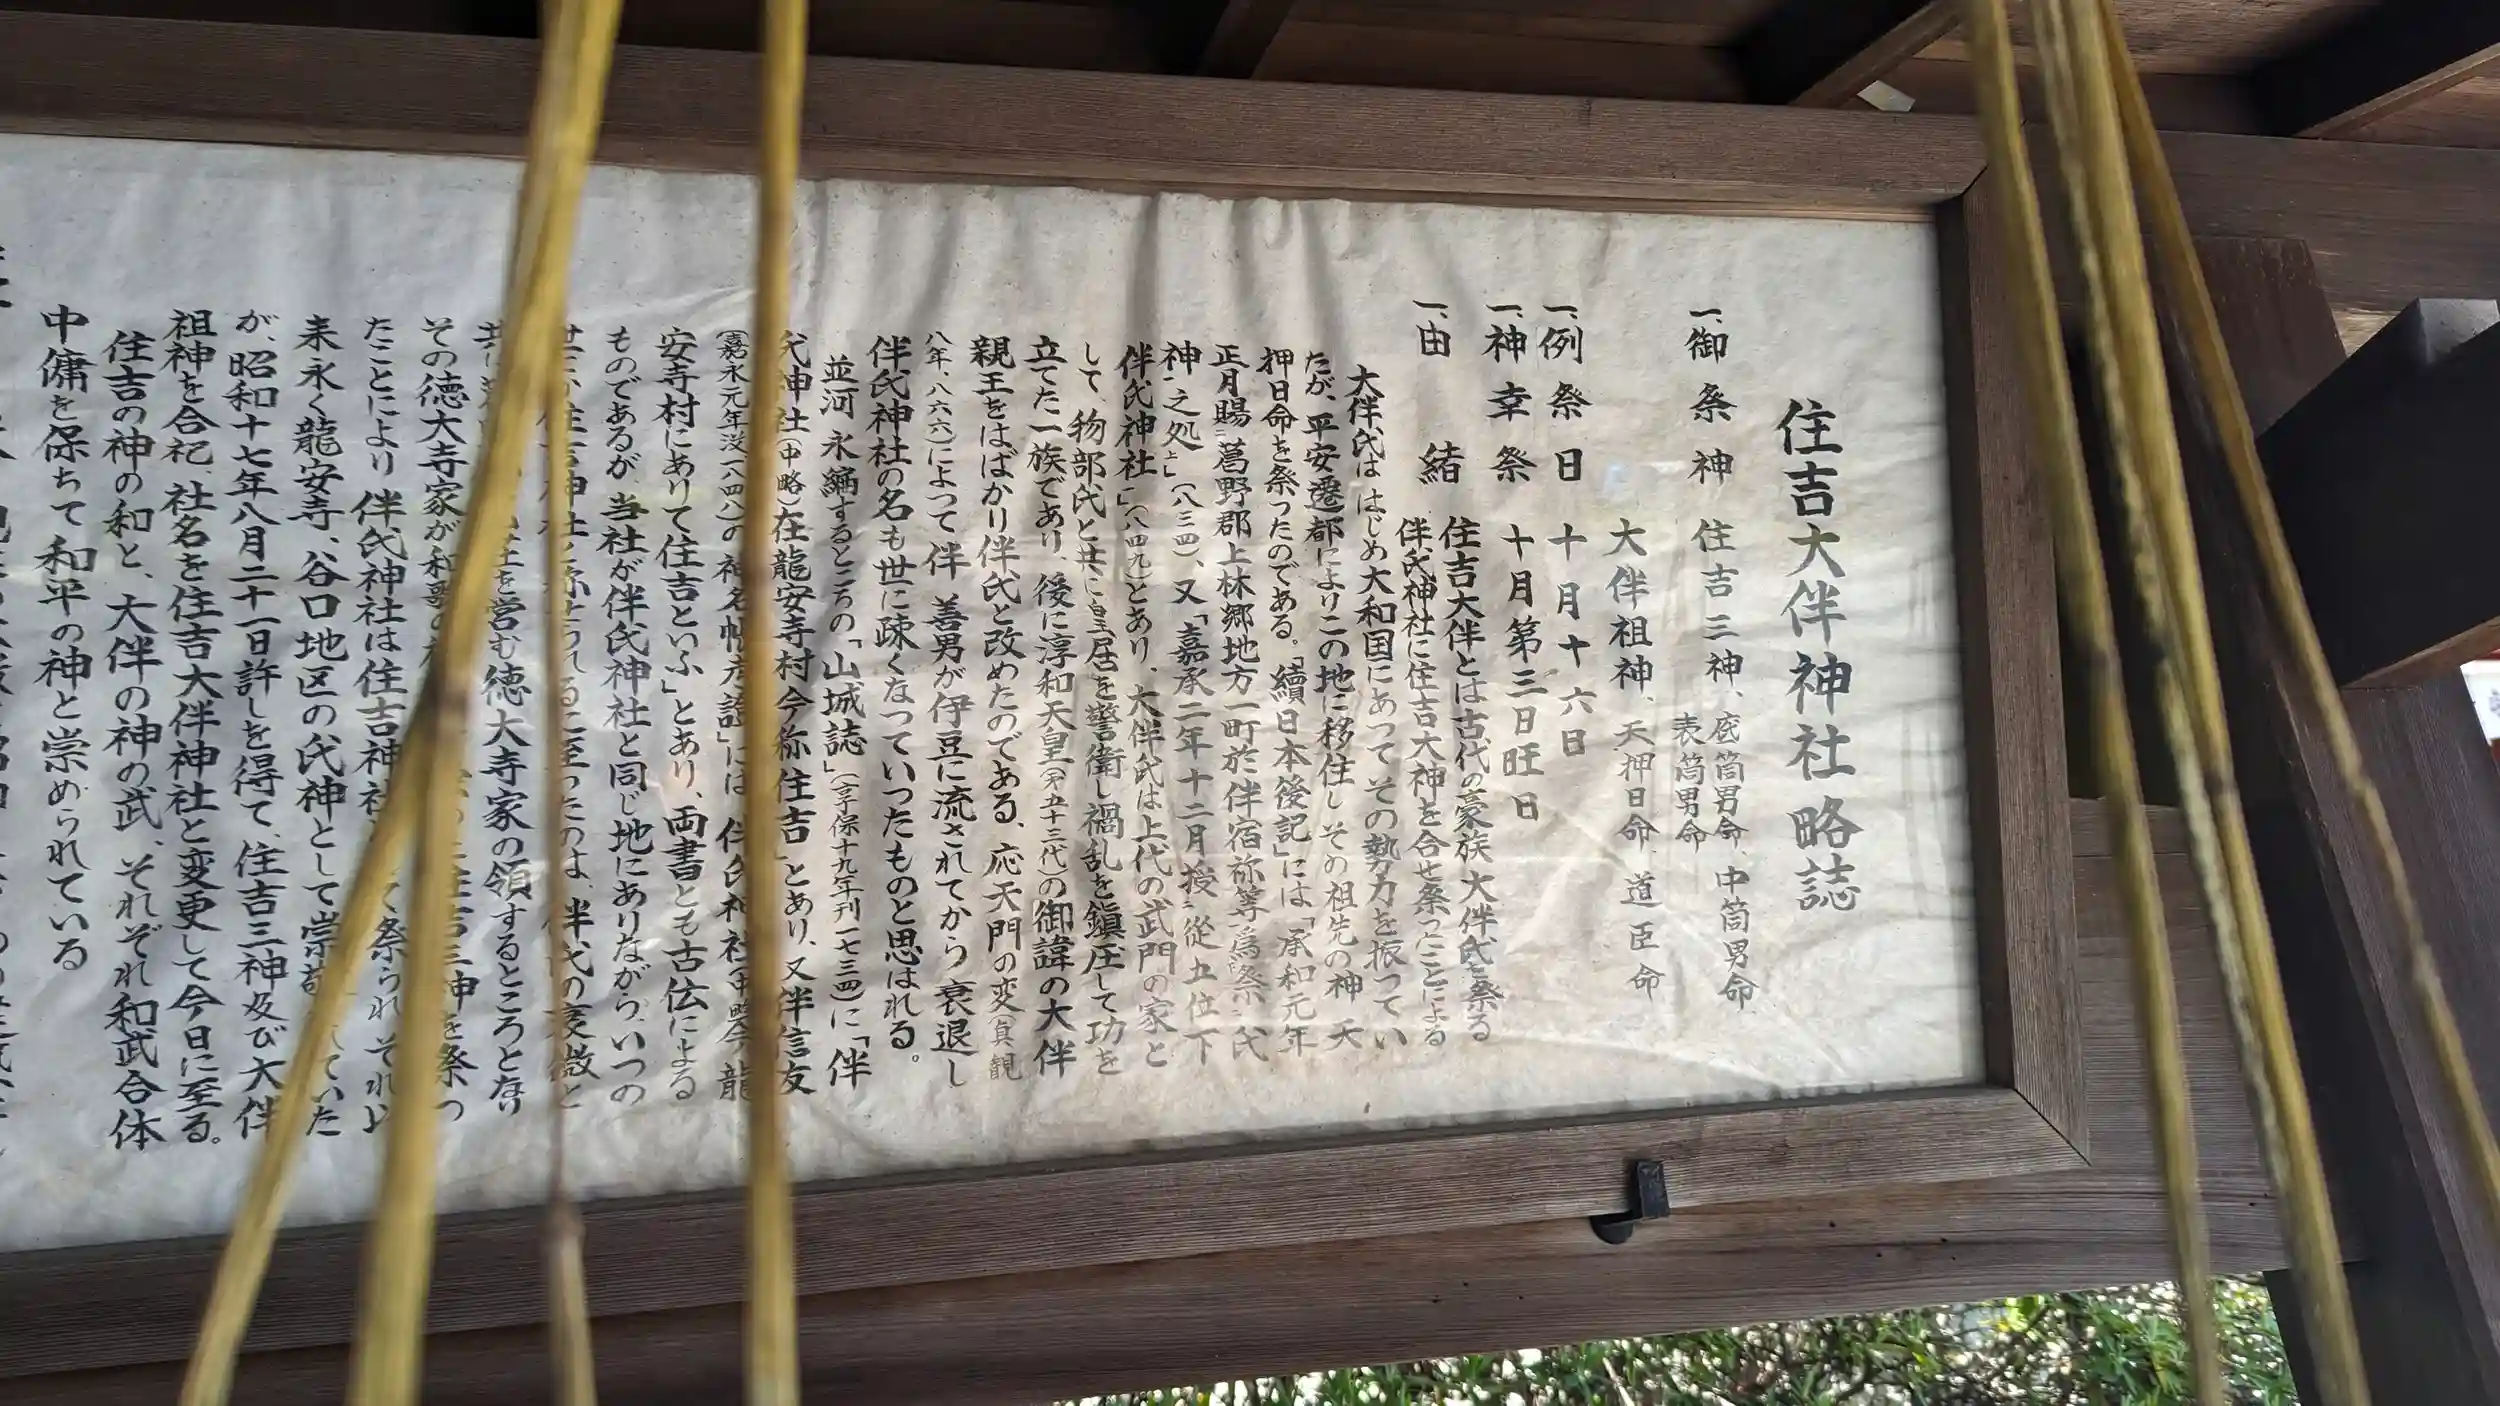 住吉大伴神社略誌
一、御祭神 住吉三神、底筒男命、中筒男命、
表筒男命
大伴祖神、天押日命、道臣命
一、例祭日 十月十六日
一、神幸祭 十月第三日旺日
一、由緒 住吉大伴とは古代の豪族大伴氏を祭る
伴氏神社に住吉大神を合せ祭ったことによる
大伴氏ははじめ大和国にあつてその勢力を振つてい
たが、平安遷都によりこの地に移住しその祖先の神 天
押日命を祭つたのである。「續日本後記」には「承和元年
正月賜ニ葛野郡上林郷地方一町於伴宿祢等爲祭ニ氏
神一之処上」(八三四)、又「嘉承二年十二月授ニ從五位下
伴氏神社」」(八四九)とあり、大伴氏は上代の武門の家と
して、物部氏と共に皇居を警衛し禍乱を鎭圧して功を
立てた一族であり、後に淳和天皇(第五十三代)の御諱の大伴
親王をはばかり伴氏と改めたのである、応天門の変(貞観
八年、八六六)によつて伴 善男が伊豆に流されてから衰退し
伴氏神社の名も世に疎くなつていつたものと思はれる。
並河永編するところの「山城誌」(享保十九年刊一七三四)に「伴
氏神社(中略)在龍安寺村今称住吉」とあり、又伴信友
(嘉永元年没一八四八)の神名帳考證」には 伴氏神社(中略今龍
安寺村にありて住吉といふ」とあり、両書とも古伝による
ものであるが、当社が伴氏神社と同じ地にありながら、いつの
住吉神社と称せられるに至つたのは、伴氏の衰微と
を営む徳大寺家の領するところとなり
その徳大寺家が和歌の 住吉三神を祭つ
たことにより伴氏神社は住吉神社 て祭られ それ以
来永く龍安寺、谷口地区の氏神として崇 れていた
が、昭和十七年八月二十一日許しを得て、住吉三神及び大伴
祖神を合祀、社名を住吉大伴神社と変更して今日に至る。
住吉の神の和と、大伴の神の武、それぞれ和武合体
中庸を保ちて和平の神と崇められている